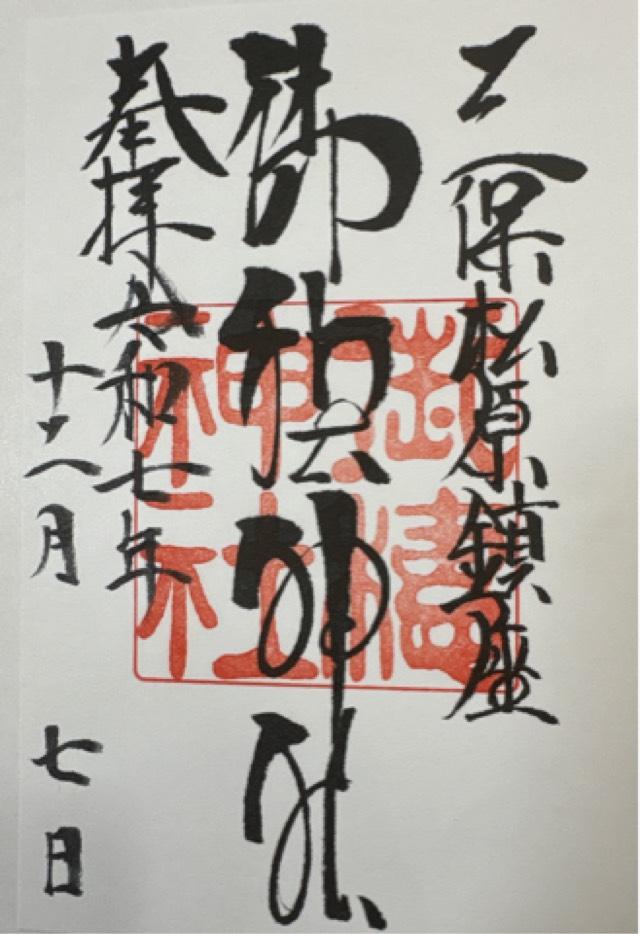 三保松原鎮座
御穂神社
奉拝
令和七年
十二月 七日
御穗
神社